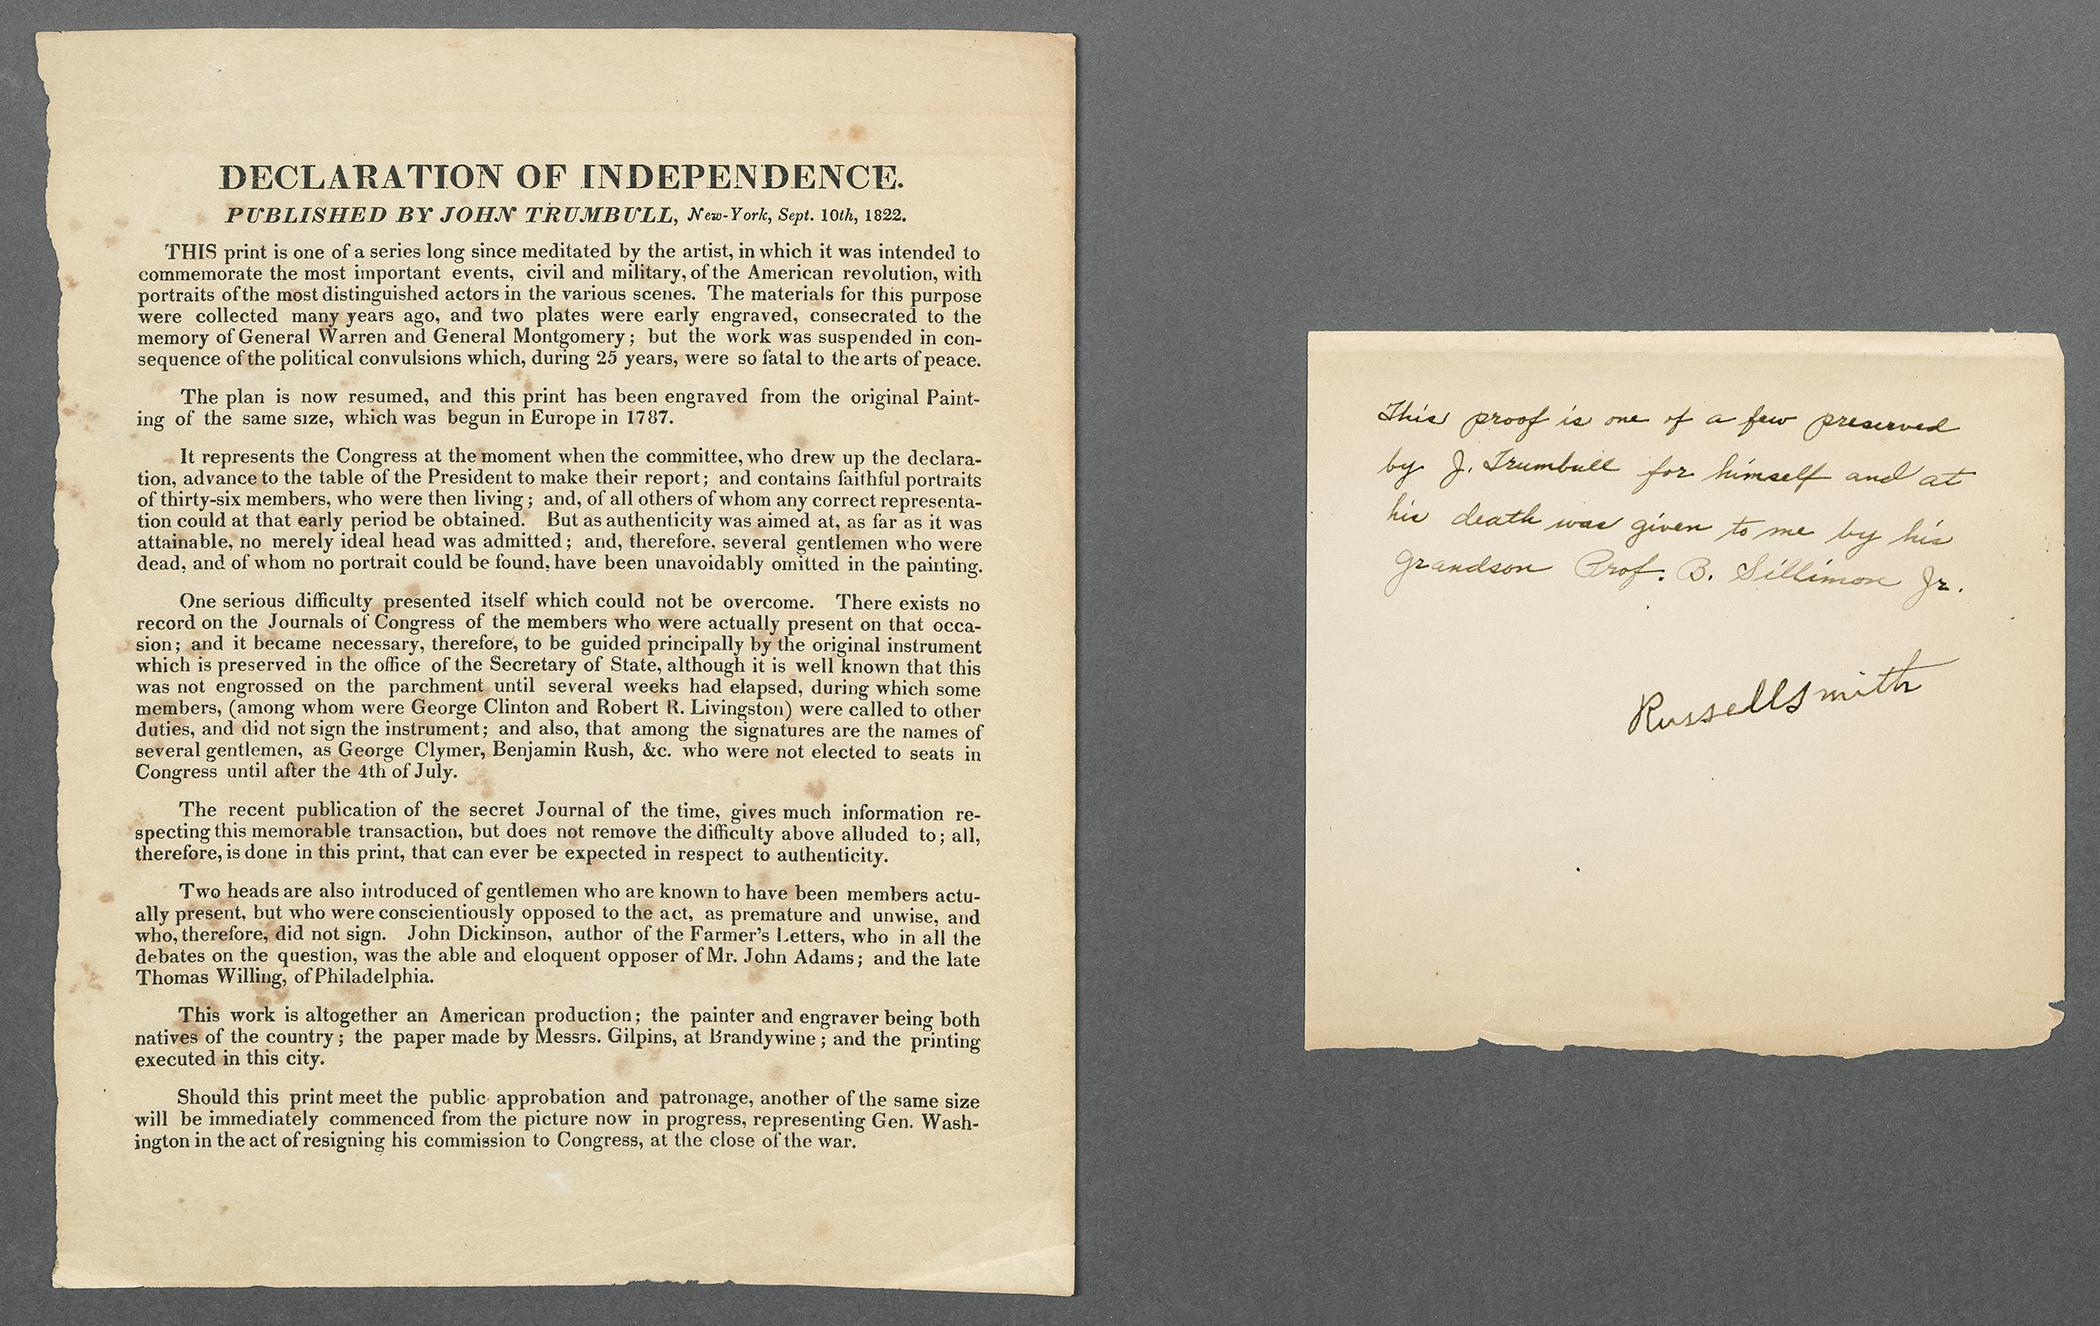 DECLARATION OF INDEPENDENCE.
PUBLISHED BY JOHN TRUMBULL, New-York, Sept. 10th, 1822.
THIS print is one of a series long since meditated by the artist, in which it was intended to
commemorate the most important events, civil and military, of the American revolution, with
portraits of the most distinguished actors in the various scenes. The materials for this purpose
were collected many years ago, and two plates were early engraved, consecrated to the
memory of General Warren and General Montgomery; but the work was suspended in con-
sequence of the political convulsions which, during 25 years, were so fatal to the arts of peace.
The plan is now resumed, and this print has been engraved from the original Paint-
ing of the same size, which was begun in Europe in 1787.
It represents the Congress at the moment when the committee, who drew up the declara-
tion, advance to the table of the President to make their report; and contains faithful portraits
of thirty-six members, who were then living; and, of all others of whom any correct representa-
tion could at that early period be obtained. But as authenticity was aimed at, as far as it was
attainable, no merely ideal head was admitted; and, therefore, several gentlemen who were
dead, and of whom no portrait could be found, have been unavoidably omitted in the painting.
One serious difficulty presented itself which could not be overcome. There exists no
record on the Journals of Congress of the members who were actually present on that occa-
sion; and it became necessary, therefore, to be guided principally by the original instrument
which is preserved in the office of the Secretary of State, although it is well known that this
was not engrossed on the parchment until several weeks had elapsed, during which some
members, (among whom were George Clinton and Robert R. Livingston) were called to other
duties, and did not sign the instrument; and also, that among the signatures are the names of
several gentlemen, as George Clymer, Benjamin Rush, &c. who were not elected to seats in
Congress until after the 4th of July.
The recent publication of the secret Journal of the time, gives much information re-
specting this memorable transaction, but does not remove the difficulty above alluded to; all,
therefore, is done in this print, that can ever be expected in respect to authenticity.
Two heads are also introduced of gentlemen who are known to have been members actu-
ally present, but who were conscientiously opposed to the act, as premature and unwise, and
who, therefore, did not sign. John Dickinson, author of the Farmer's Letters, who in all the
debates on the question, was the able and eloquent opposer of Mr. John Adams; and the late
Thomas Willing, of Philadelphia.
This work is altogether an American production; the painter and engraver being both
natives of the country; the paper made by Messrs. Gilpins, at Brandywine; and the printing
executed in this city.
Should this print meet the public approbation and patronage, another of the same size
will be immediately commenced from the picture now in progress, representing Gen. Wash-
ington in the act of resigning his commission to Congress, at the close of the war.
This proof is one of a few preserved
by J. Trumbull for himself and at
his death was given to me by his
grandson Prof. B. Sillimon Jr.
Russell Smith